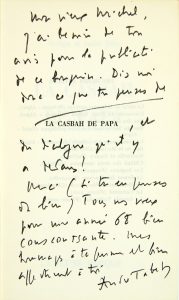 Mon vieux Michel,
j'ai besoin de ton
avis pour la publicité
de ce bouquin. Dis moi
donc ce que tu penses de
LA CASBAH DE PAPA, et
du dialogue qu'il y
a dedans!
Merci (si tu en penses
du bien) Tous nos vœux
pour une année 68 bien
consonnante. Mes
hommages à ta femme et bien
affectueusement à toi